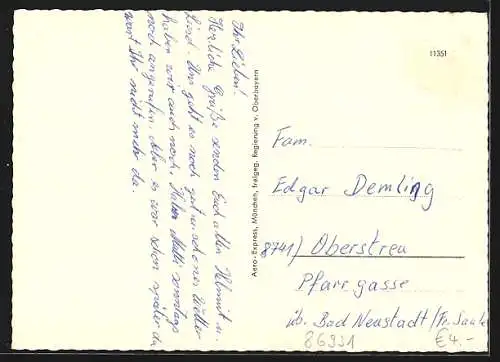 Ihr Lieben!
Herzliche Grüße senden Euch allen Helmut u.
Lissi. Uns geht es noch gut u. schönes Wetter
haben wir auch noch. Haben Mutti sonntags
noch angerufen. Aber es war schon später da
wart Ihr nicht mehr da.
Aero-Express, München, freigeg. Regierung v. Oberbayern
11351
Fam.
Edgar Demling
8741) Oberstreu
Pfarrgasse
üb. Bad Neustadt/Fr. Saale
86931
€4.-